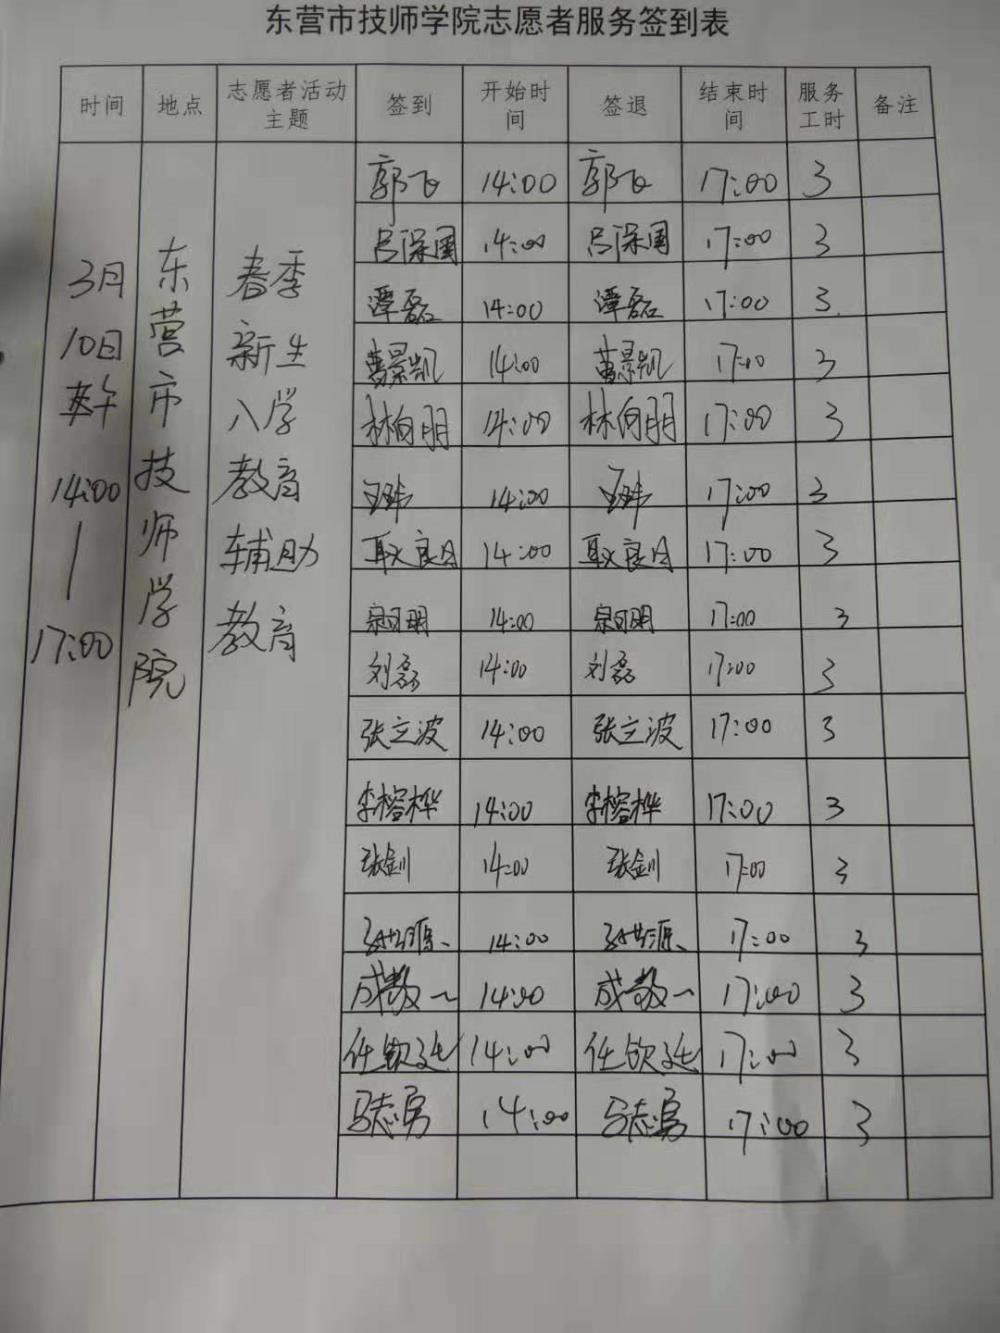 东营市技师学院志愿者服务签到表
时间 地点 志愿者活动主题 签到 开始时间 签退 结束时间 服务工时 备注
3月10日 14:00 | 17:00
东营市技师学院
春季新生入学教育辅助教育
郭飞 14:00 郭飞 17:00 3
吕保国 14:00 吕保国 17:00 3
谭磊 14:00 谭磊 17:00 3
曹景凯 14:00 曹景凯 17:00 3
林向朋 14:00 林向朋 17:00 3
王玮 14:00 王玮 17:00 3
14:00 17:00 3
14:00 17:00 3
刘磊 14:00 刘磊 17:00 3
张立波 14:00 张立波 17:00 3
李榕桦 14:00 李榕桦 17:00 3
张钊 14:00 张钊 17:00 3
14:00 17:00 3
成教一 14:00 成教一 17:00 3
任钦廷 14:00 任钦廷 17:00 3
马志勇 14:00 马志勇 17:00 3